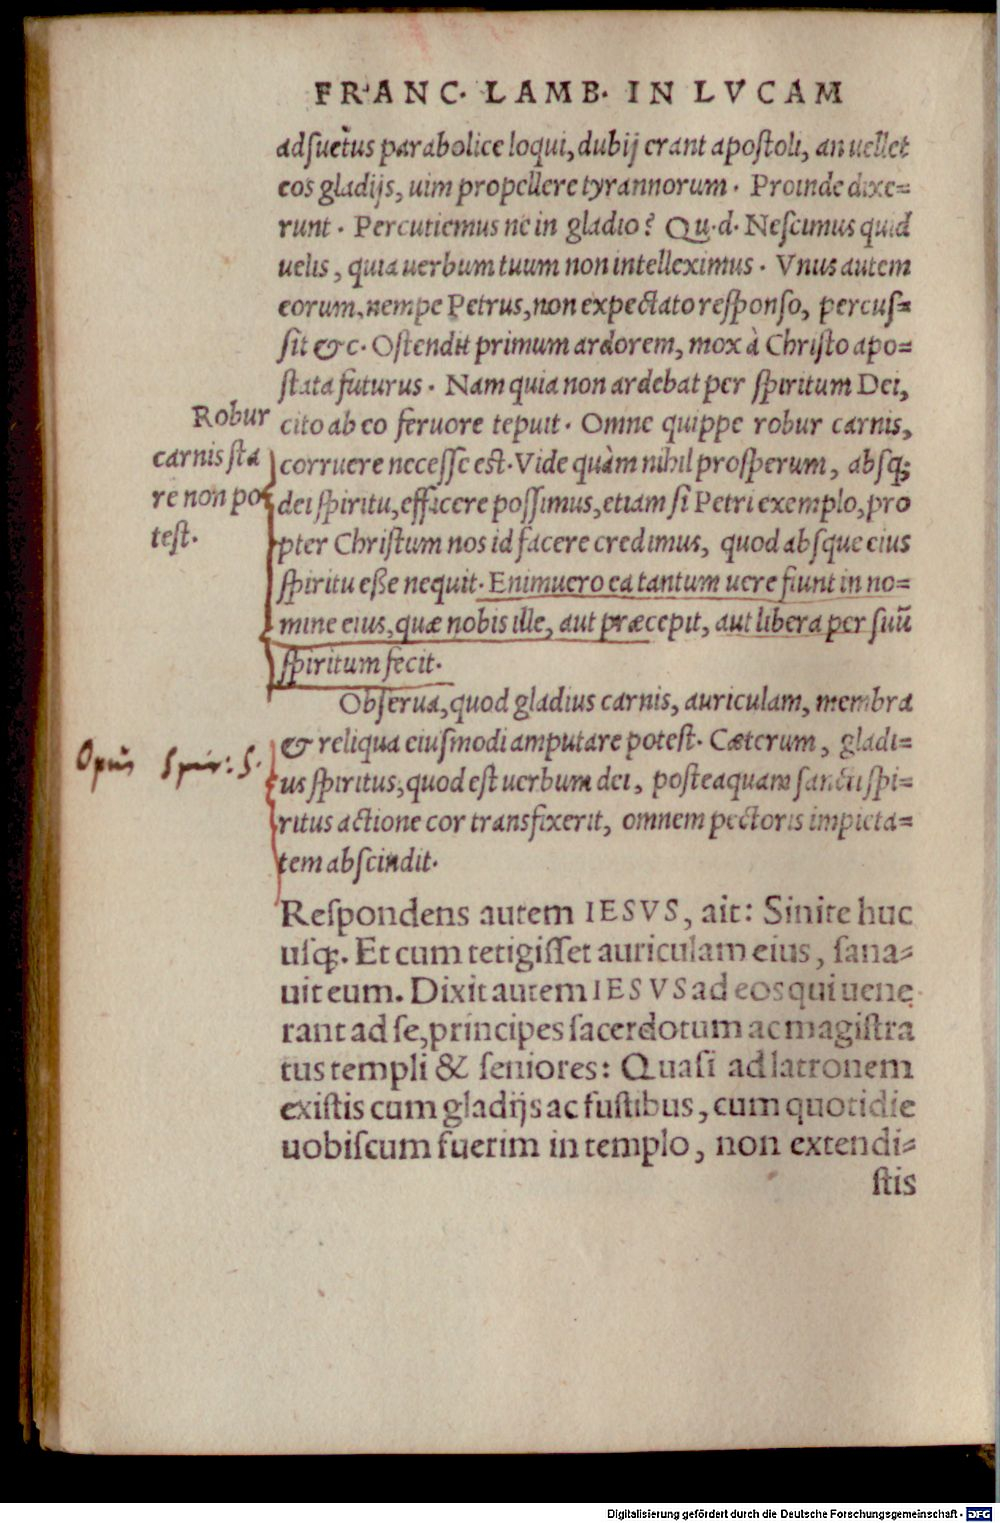 FRANC. LAMB. IN LVCAM
adſuetus parabolice loqui, dubij erant apoſtoli, an uellet
eos gladijs, uim propellere tyrannorum. Proinde dixe=
runt. Percutiemus ne in gladio? Qu.d. Neſcimus quid
uelis, quia uerbum tuum non intelleximus. Vnus autem
eorum, nempe Petrus, non expectato reſponſo, percuſ=
ſit &c. Oſtendit primum ardorem, mox à Chriſto apo=
ſtata futurus. Nam quia non ardebat per ſpiritum Dei,
cito ab eo feruore tepuit. Omne quippe robur carnis,
corruere neceſſe eſt. Vide quàm nihil proſperum, abſq;
dei ſpiritu, efficere poſſimus, etiam ſi Petri exemplo, pro
pter Chriſtum nos id facere credimus, quod abſque eius
ſpiritu eſſe nequit. Enimuero ea tantum uere fiunt in no=
mine eius, quæ nobis ille, aut præcepit, aut libera per ſuū
ſpiritum fecit.
Robur
carnis ſta
re non po
teſt.
Obſerua, quod gladius carnis, auriculam, membra
& reliqua eiuſmodi amputare poteſt. Cæterum, gladi=
us ſpiritus, quod eſt uerbum dei, poſteaquam ſancti ſpi=
ritus actione cor transfixerit, omnem pectoris impieta=
tem abſcindit.
Opus Spir: S.
Reſpondens autem IESVS, ait: Sinite huc
uſq;. Et cum tetigiſſet auriculam eius, ſana-
uit eum. Dixit autem IESVS ad eos qui uene
rant ad ſe, principes ſacerdotum ac magiſtra
tus templi & ſeniores: Quaſi ad latronem
exiſtis cum gladijs ac fuſtibus, cum quotidie
uobiſcum fuerim in templo, non extendi-
ſtis
Digitalisierung gefördert durch die Deutsche Forschungsgemeinschaft - DFG